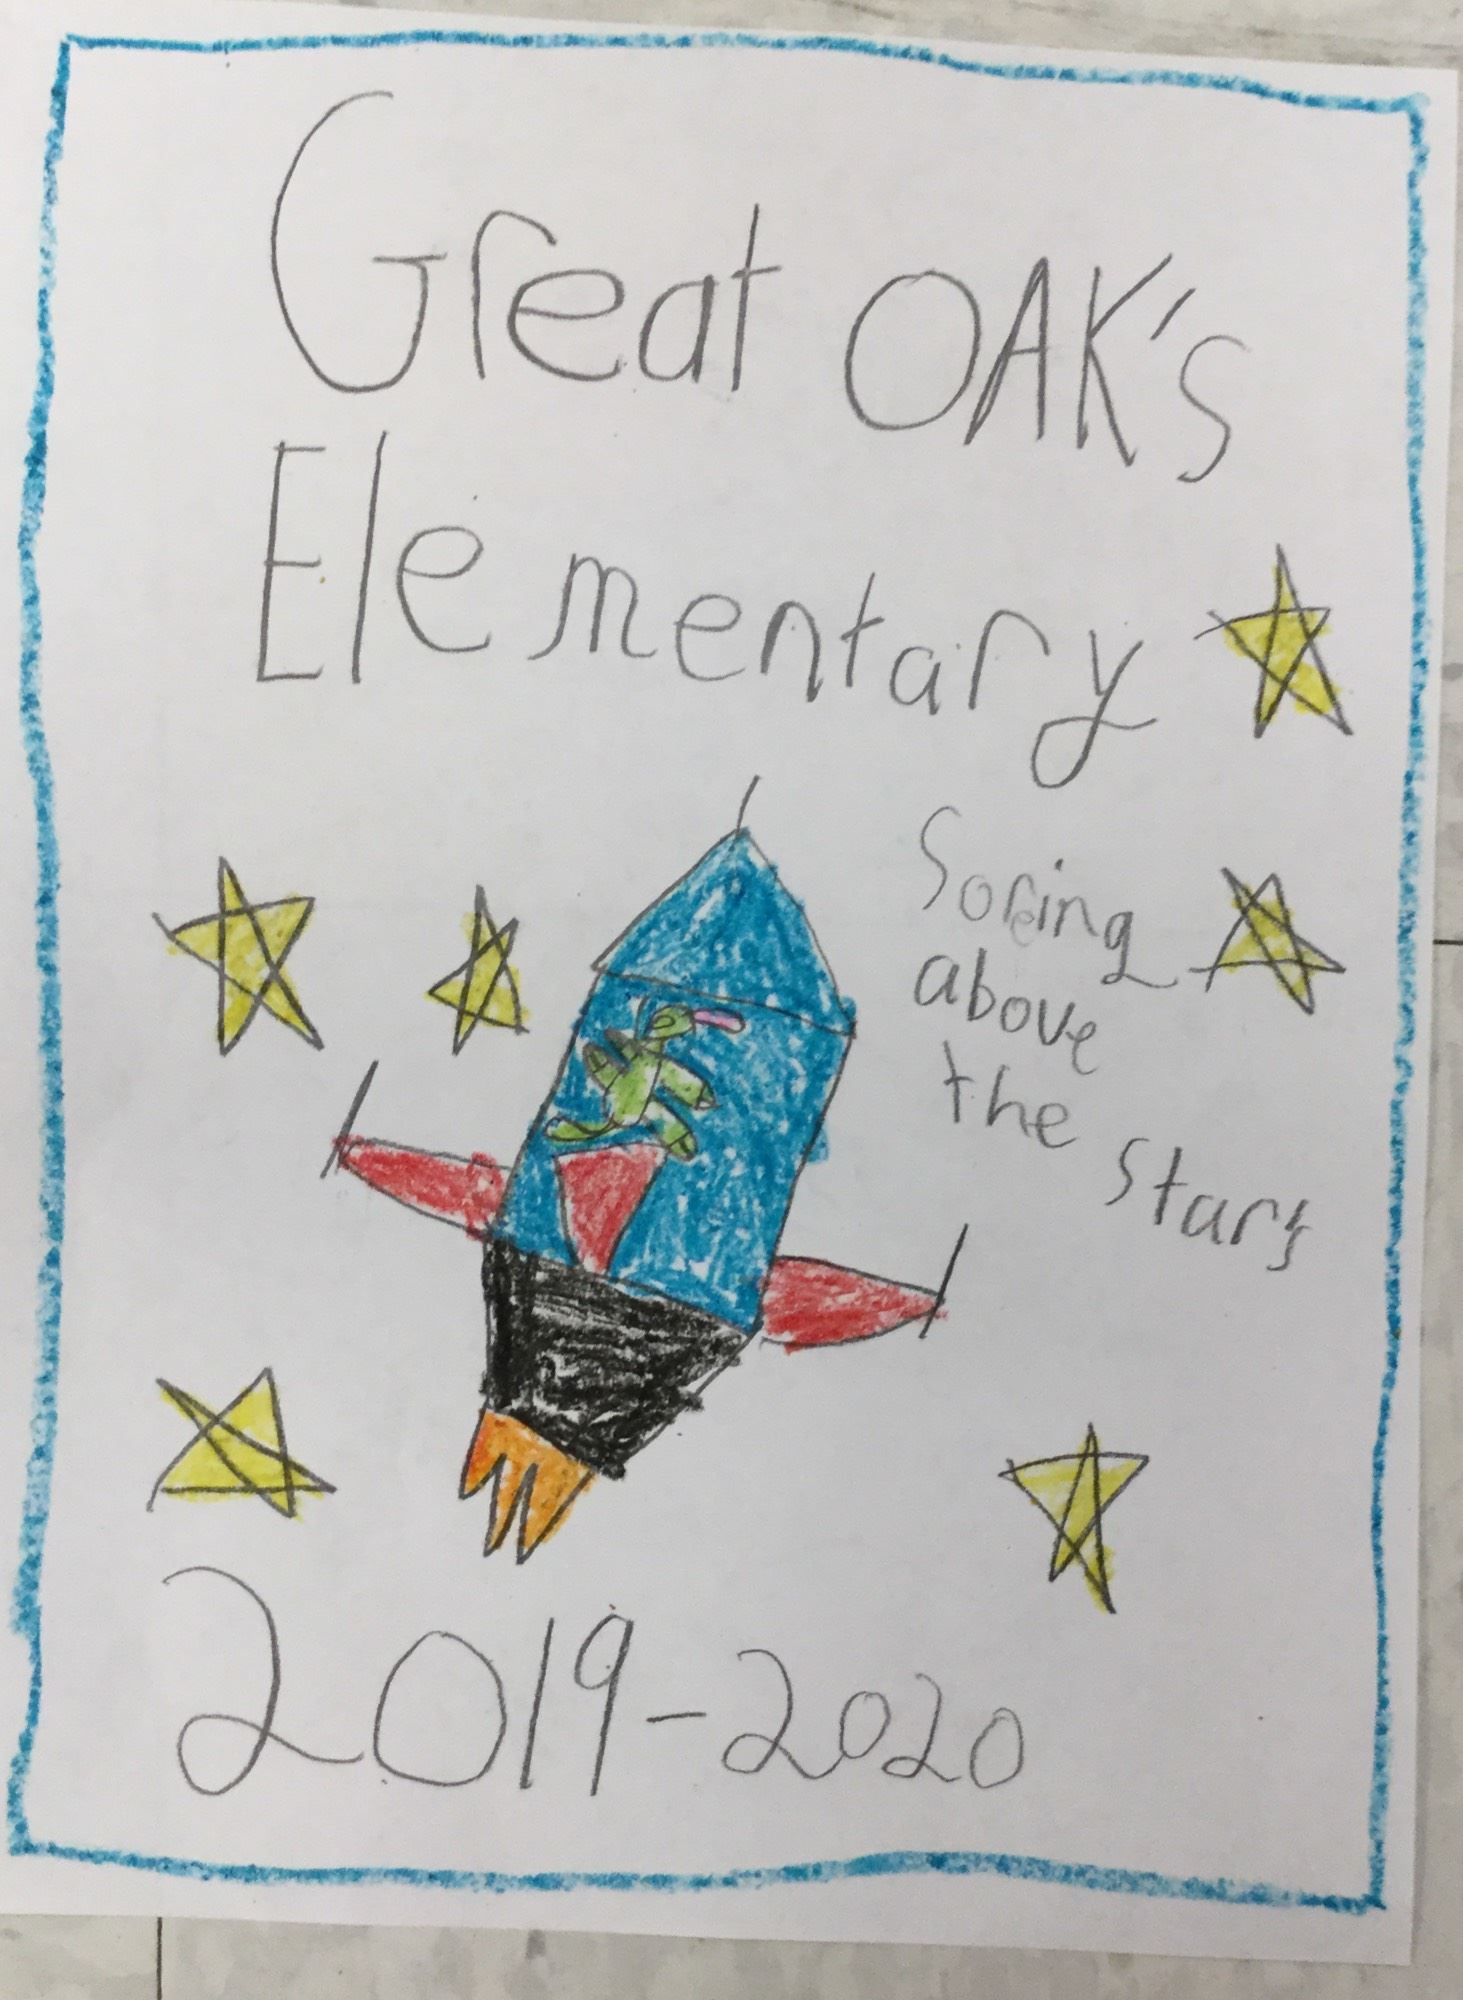 Great OAK's
Elementary
Soring
above
the stars
2019-2020